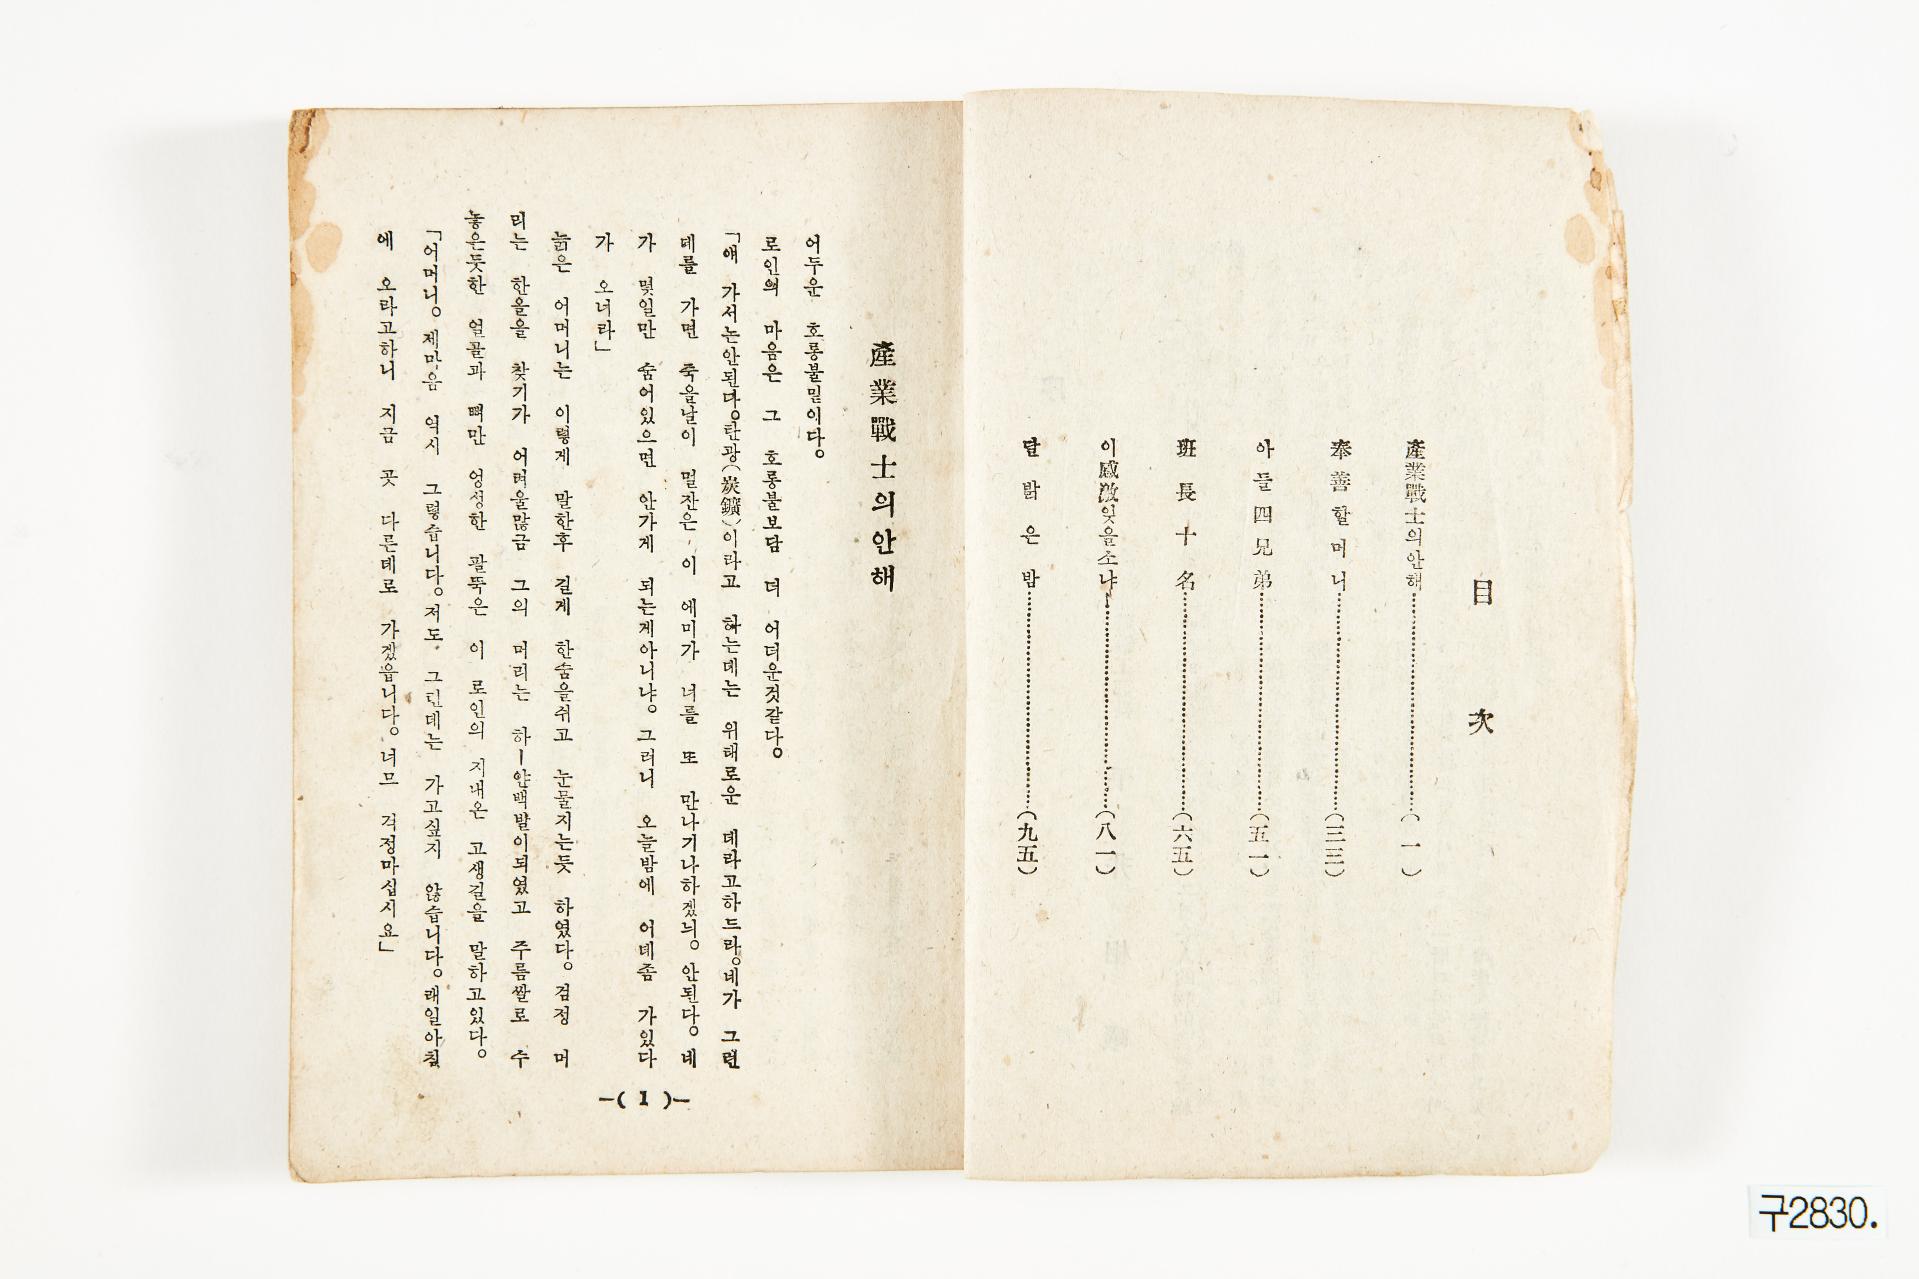 目次
產業戰士의안해(一)
奉善할머니(三三)
아들四兄弟(五一)
班長十名(六五)
이感激잇을소냐(八一)
달밝은밤(九五)
產業戰士의안해
어두운 호롱불밑이다。
로인의 마음은 그 호롱불보담 더 어더운것같다。
「얘 가서는안된다。탄광(炭鑛)이라고 하는데는 위태로운 데라고하드라。네가 그런
데를 가면 죽을날이 멀잔은, 이 에미가 너를 또 만나기나하겠늬。안된다。네
가 몇일만 숨어있으면 안가게 되는게아니냐。그러니 오늘밤에 어데좀 가있다
가 오너라」
늙은 어머니는 이렇게 말한후 길게 한숨을쉬고 눈물지는듯 하였다。검정 머
리는 한올을 찾기가 어려울많금 그의 머리는 하ㅣ얀백발이되였고 주름쌀로 수
놓은듯한 얼골과 뼈만 엉성한 팔뚝은 이 로인의 지내온 고생길을 말하고있다。
「어머니。제마음 역시 그렇습니다。저도 그런데는 가고싶지 않습니다。래일아침
에 오라고하니 지금 곳 다른데로 가겠읍니다。너므 걱정마십시요」
-( 1 )-
구2830.